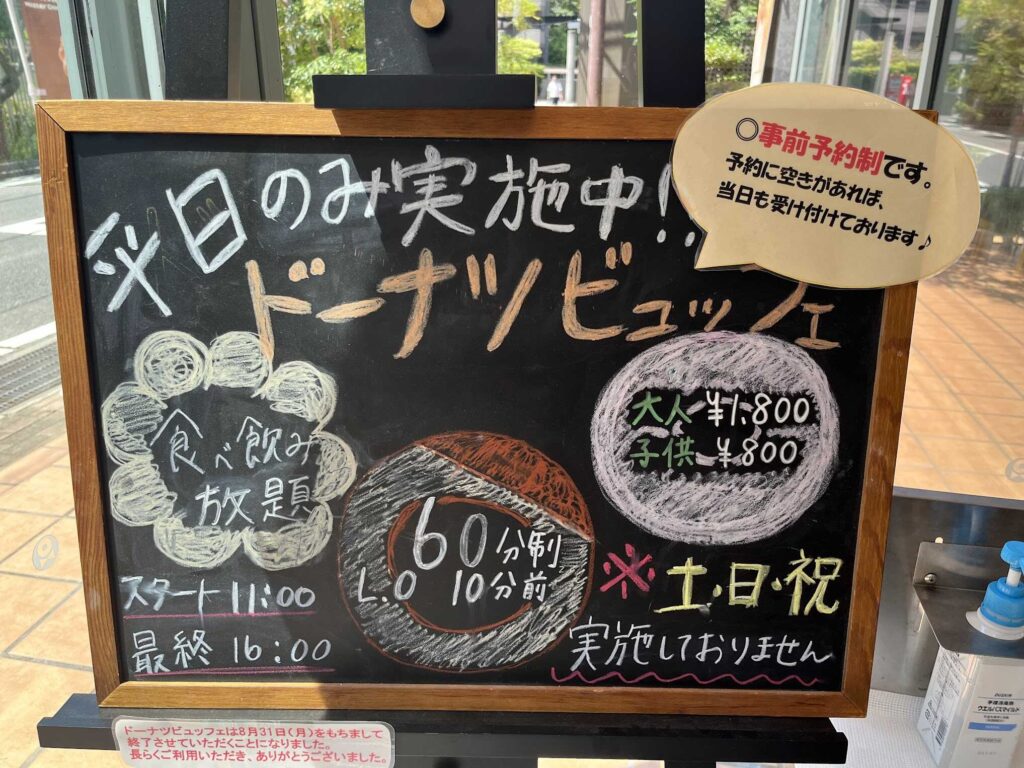 日のみ実施中!!
ドーナツビュッフェ
○事前予約制です。
予約に空きがあれば、
当日も受け付けております♪
食べ飲み
放題
60分制
L.O 10分前
大人 ¥1,800
子供 ¥800
スタート 11:00
最終 16:00
※土・日・祝
実施しておりません
ドーナツビュッフェは8月31日(月)をもちまして
終了させていただくことになりました。
長らくご利用いただき、ありがとうございました。
DUSKIN